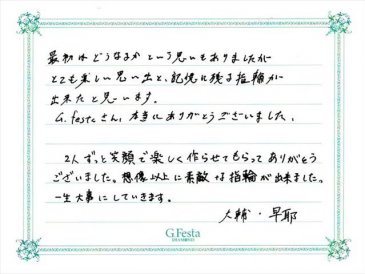 最初はどうなるかという思いもありましたが
とても楽しい思い出と、記憶に残る指輪が
出来たと思います。
G.festaさん、本当にありがとうございました。
2人ずっと笑顔で楽しく作らせてもらってありがとう
ございました。想像以上に素敵な指輪が出来ました。
一生大事にしていきます。
大輔・早耶
G.Festa
DIAMOND